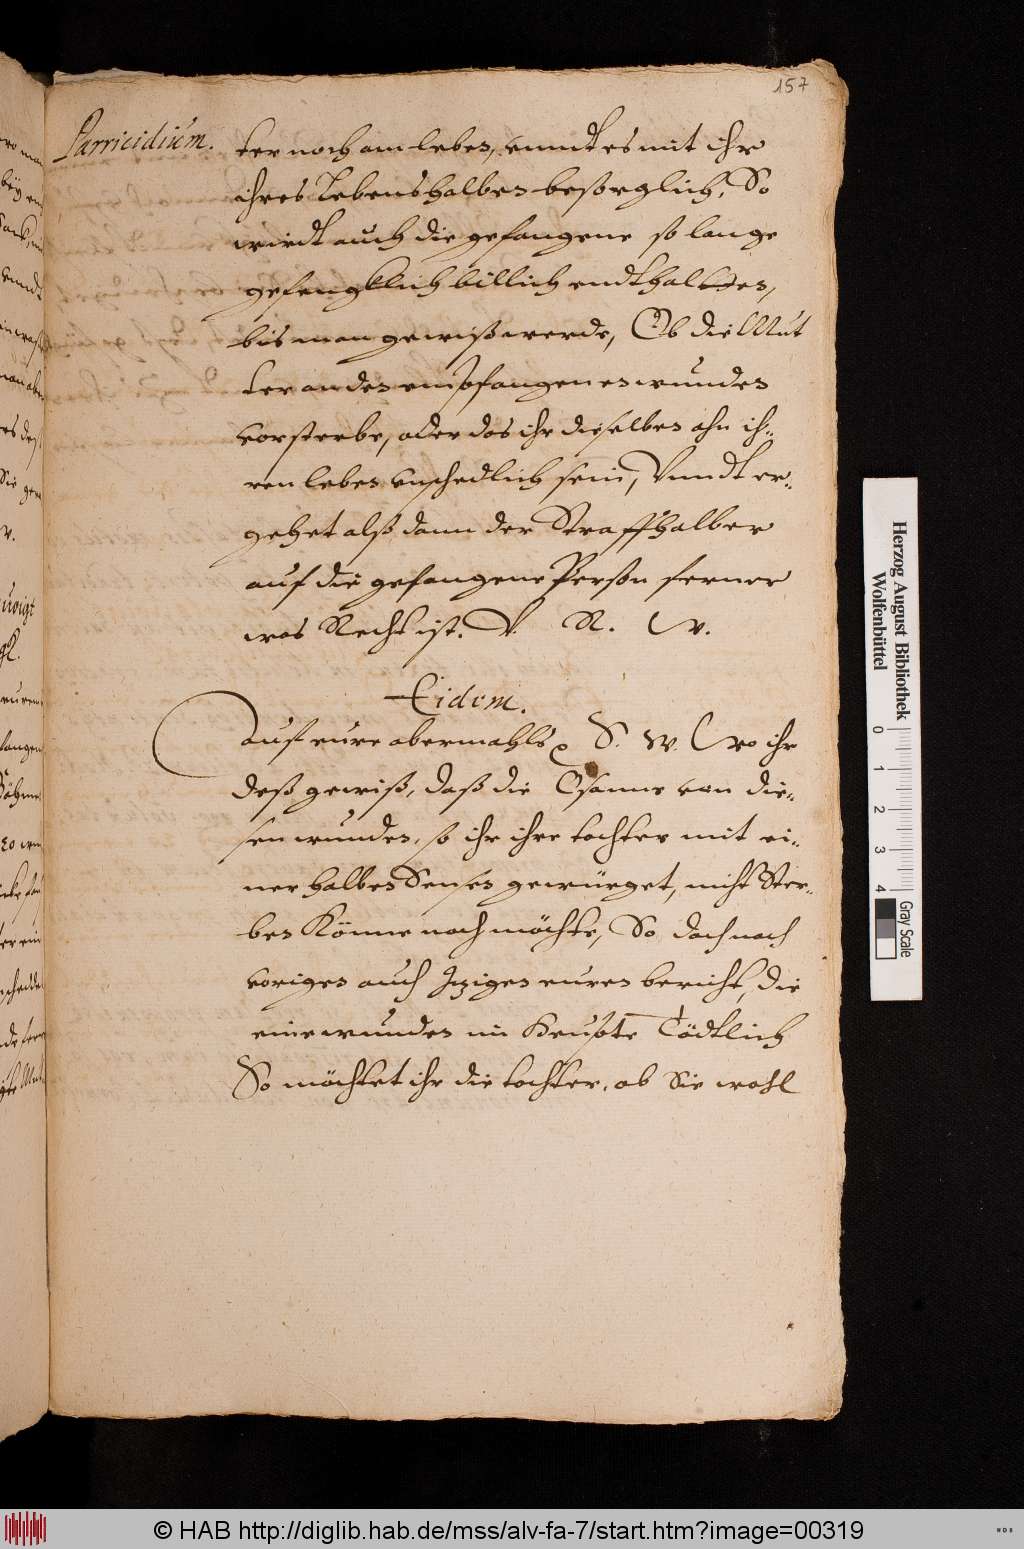 157
Parricidium.
ter noch am leben, vnndt es mit ihr
ihres Lebens halben besorglich, So
wirdt auch die gefangene so lange
gefengklich billich endthalten,
bis man gewiß werde, Ob die Mut
ter an den empfangenen wunden
vorsterbe, oder das ihr dieselben ahn ih-
ren leben vnschedlich sein, Vnndt er-
gehet alß dann der Straff halber
auf die gefangene Person ferner
was Recht ist. V. R. W.
Eidem.
Auf eure abermahls S. W. Wo ihr
deß gewiß, daß die Osanne von die-
sen wunden, so ihr ihre tochter mit ei-
ner halben Sensen gewürget, nicht Ster-
ben könne noch möchte, So doch nach
vorigen auch Jtzigen euren bericht, die
eine wunden im Heupte Tödtlich
So möchtet ihr die tochter, ob Sie wohl
Herzog August Bibliothek
Wolfenbüttel
0 1 2 3 4
Gray Scale
© HAB http://diglib.hab.de/mss/alv-fa-7/start.htm?image=00319